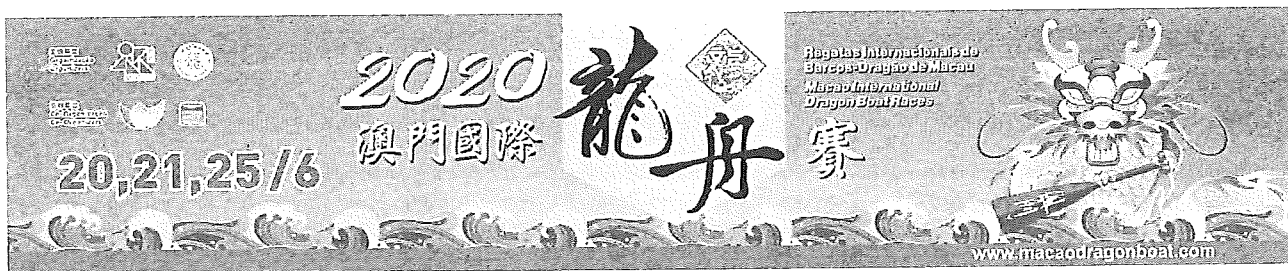 2020
澳門國際
龍舟
賽
20,21,25/6
Regatas Internacionais de
Barcos-Dragão de Macau
Macao International
Dragon Boat Races
www.macaodragonboat.com